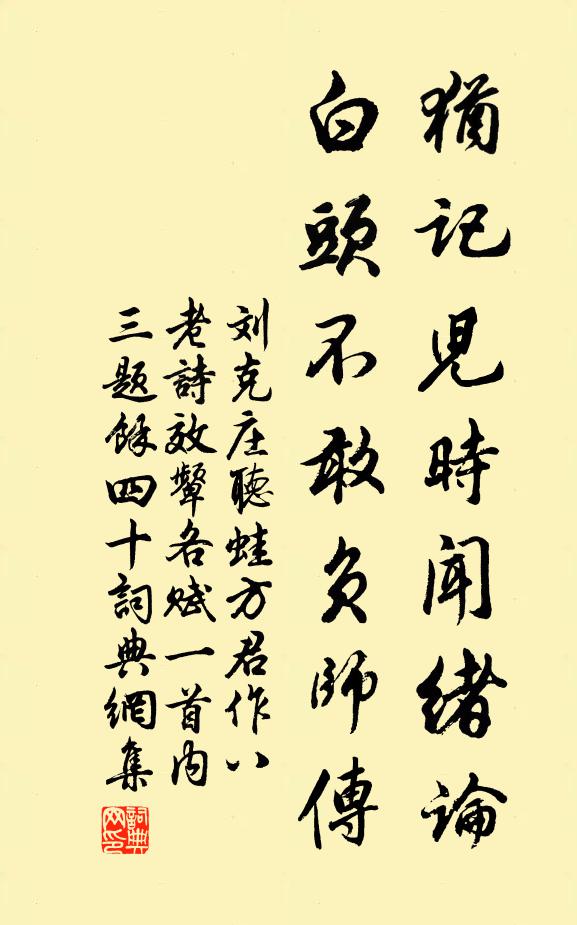 猶記児時聞緒論
白頭不敢負師傳
刘克庄聽蛙方君作八
老詩效顰各赋一首内
三题餘四十詞典網集
詞典
网印